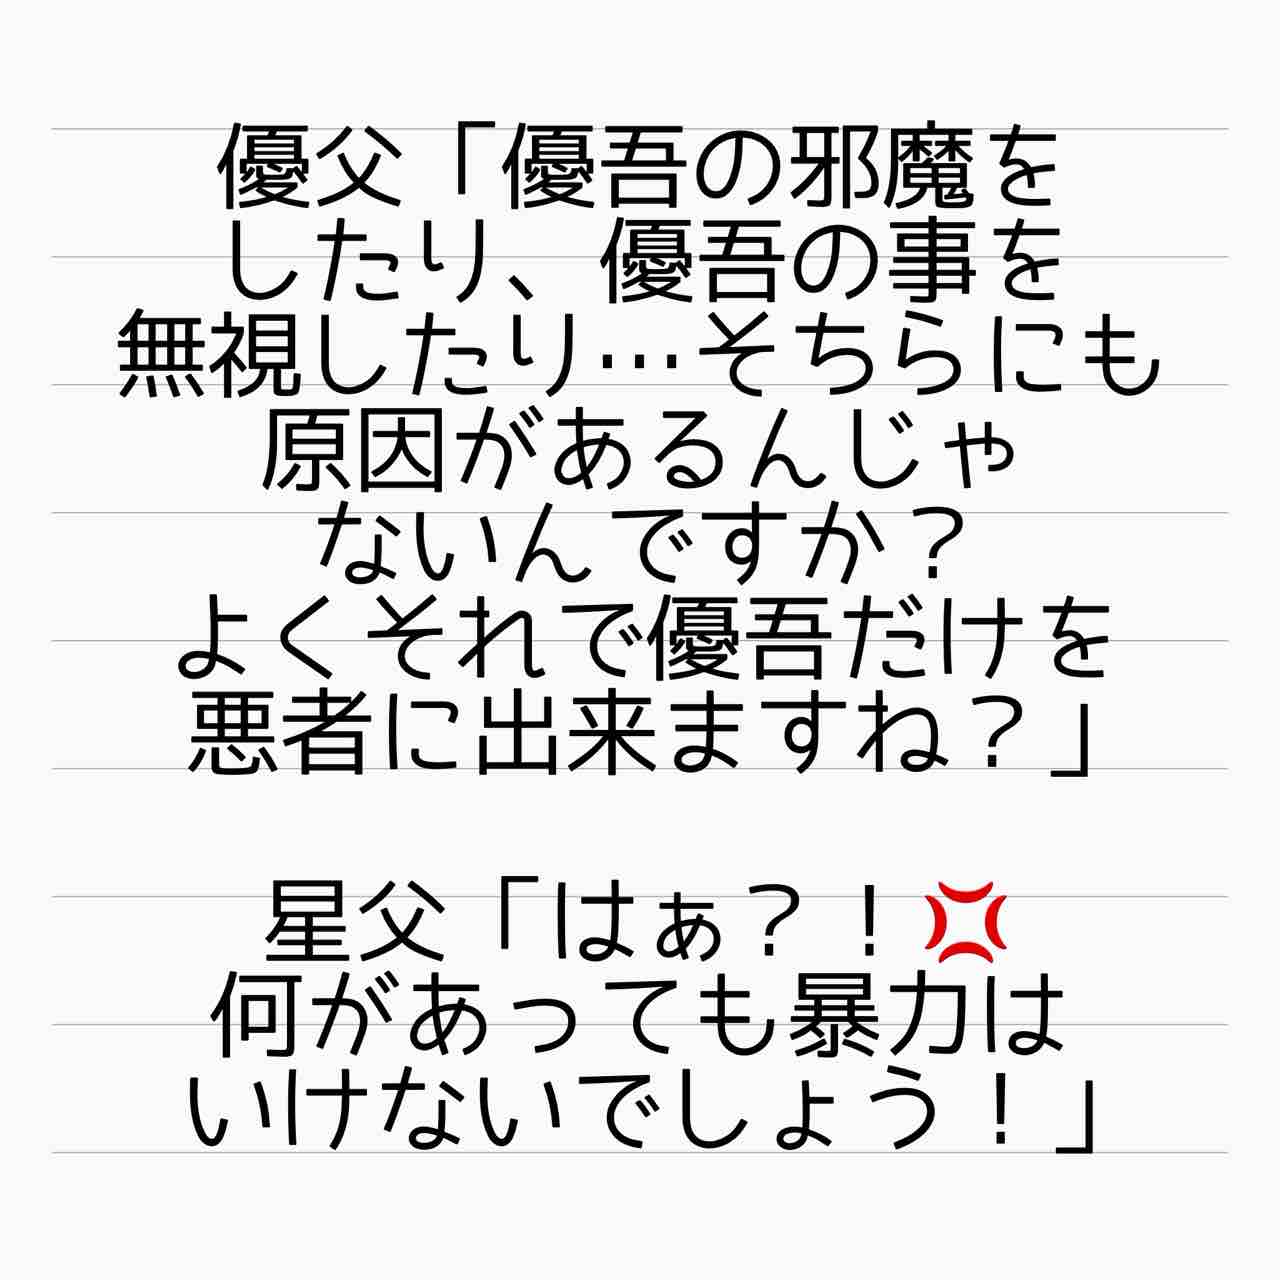 優父「優吾の邪魔を
したり、優吾の事を
無視したり…そちらにも
原因があるんじゃ
ないんですか？
よくそれで優吾だけを
悪者に出来ますね？」
星父「はぁ？！💢
何があっても暴力は
いけないでしょう！」